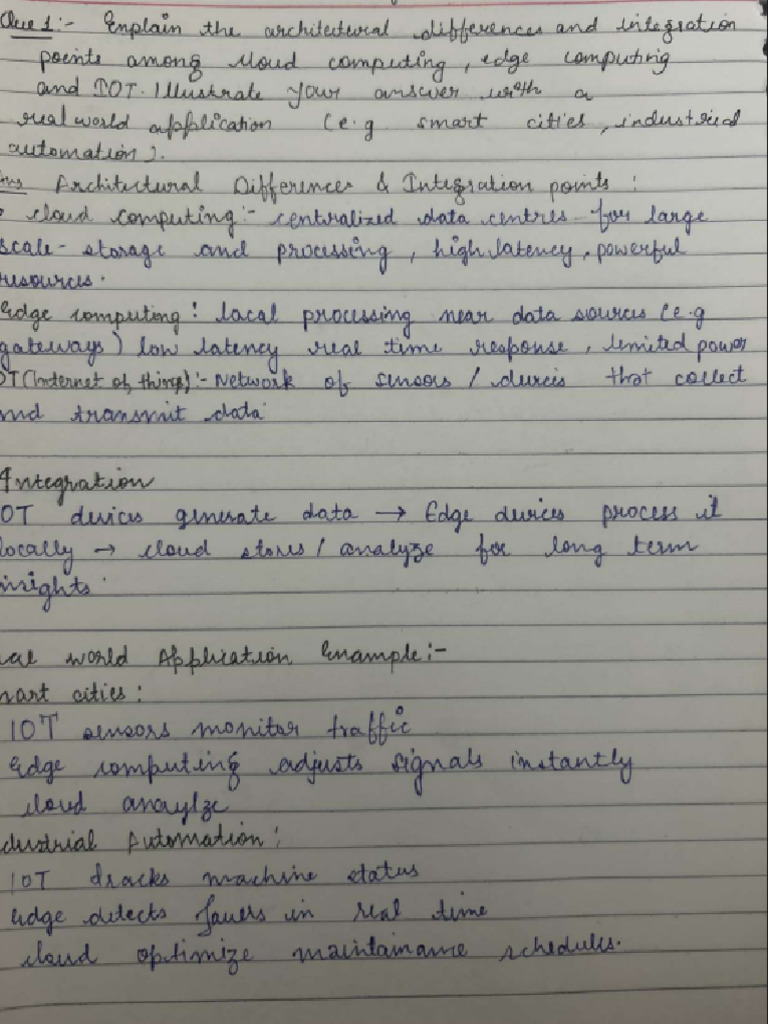 Que 1:- Explain the architectural differences and integration
points among cloud computing, edge computing
and IOT. Illustrate your answer with a
real world application (e.g smart cities, industrial
automation).
Ans Architectural Differences & Integration points:
cloud computing:- centralized data centres for large
scale- storage and processing, high latency, powerful
resources.
Edge computing: local processing near data sources (e.g
gateways) low latency real time response, limited power
OT (Internet of things):- Network of sensors / devices that collect
nd transmit data.
Integration
OT devices generate data → Edge devices process it
locally → cloud stores / analyze for long term
nsights.
eal world Application Example:-
mart cities:
IOT sensors monitor traffic
Edge computing adjusts signals instantly
cloud anaylze
dustrial Automation:
IOT dracks machine status
Edge detects in real time
cloud optimize maintainance schedules.